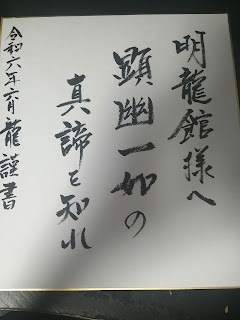 明龍館様へ
顕幽一如の
真諦を知れ
令和六年六月龍謹書